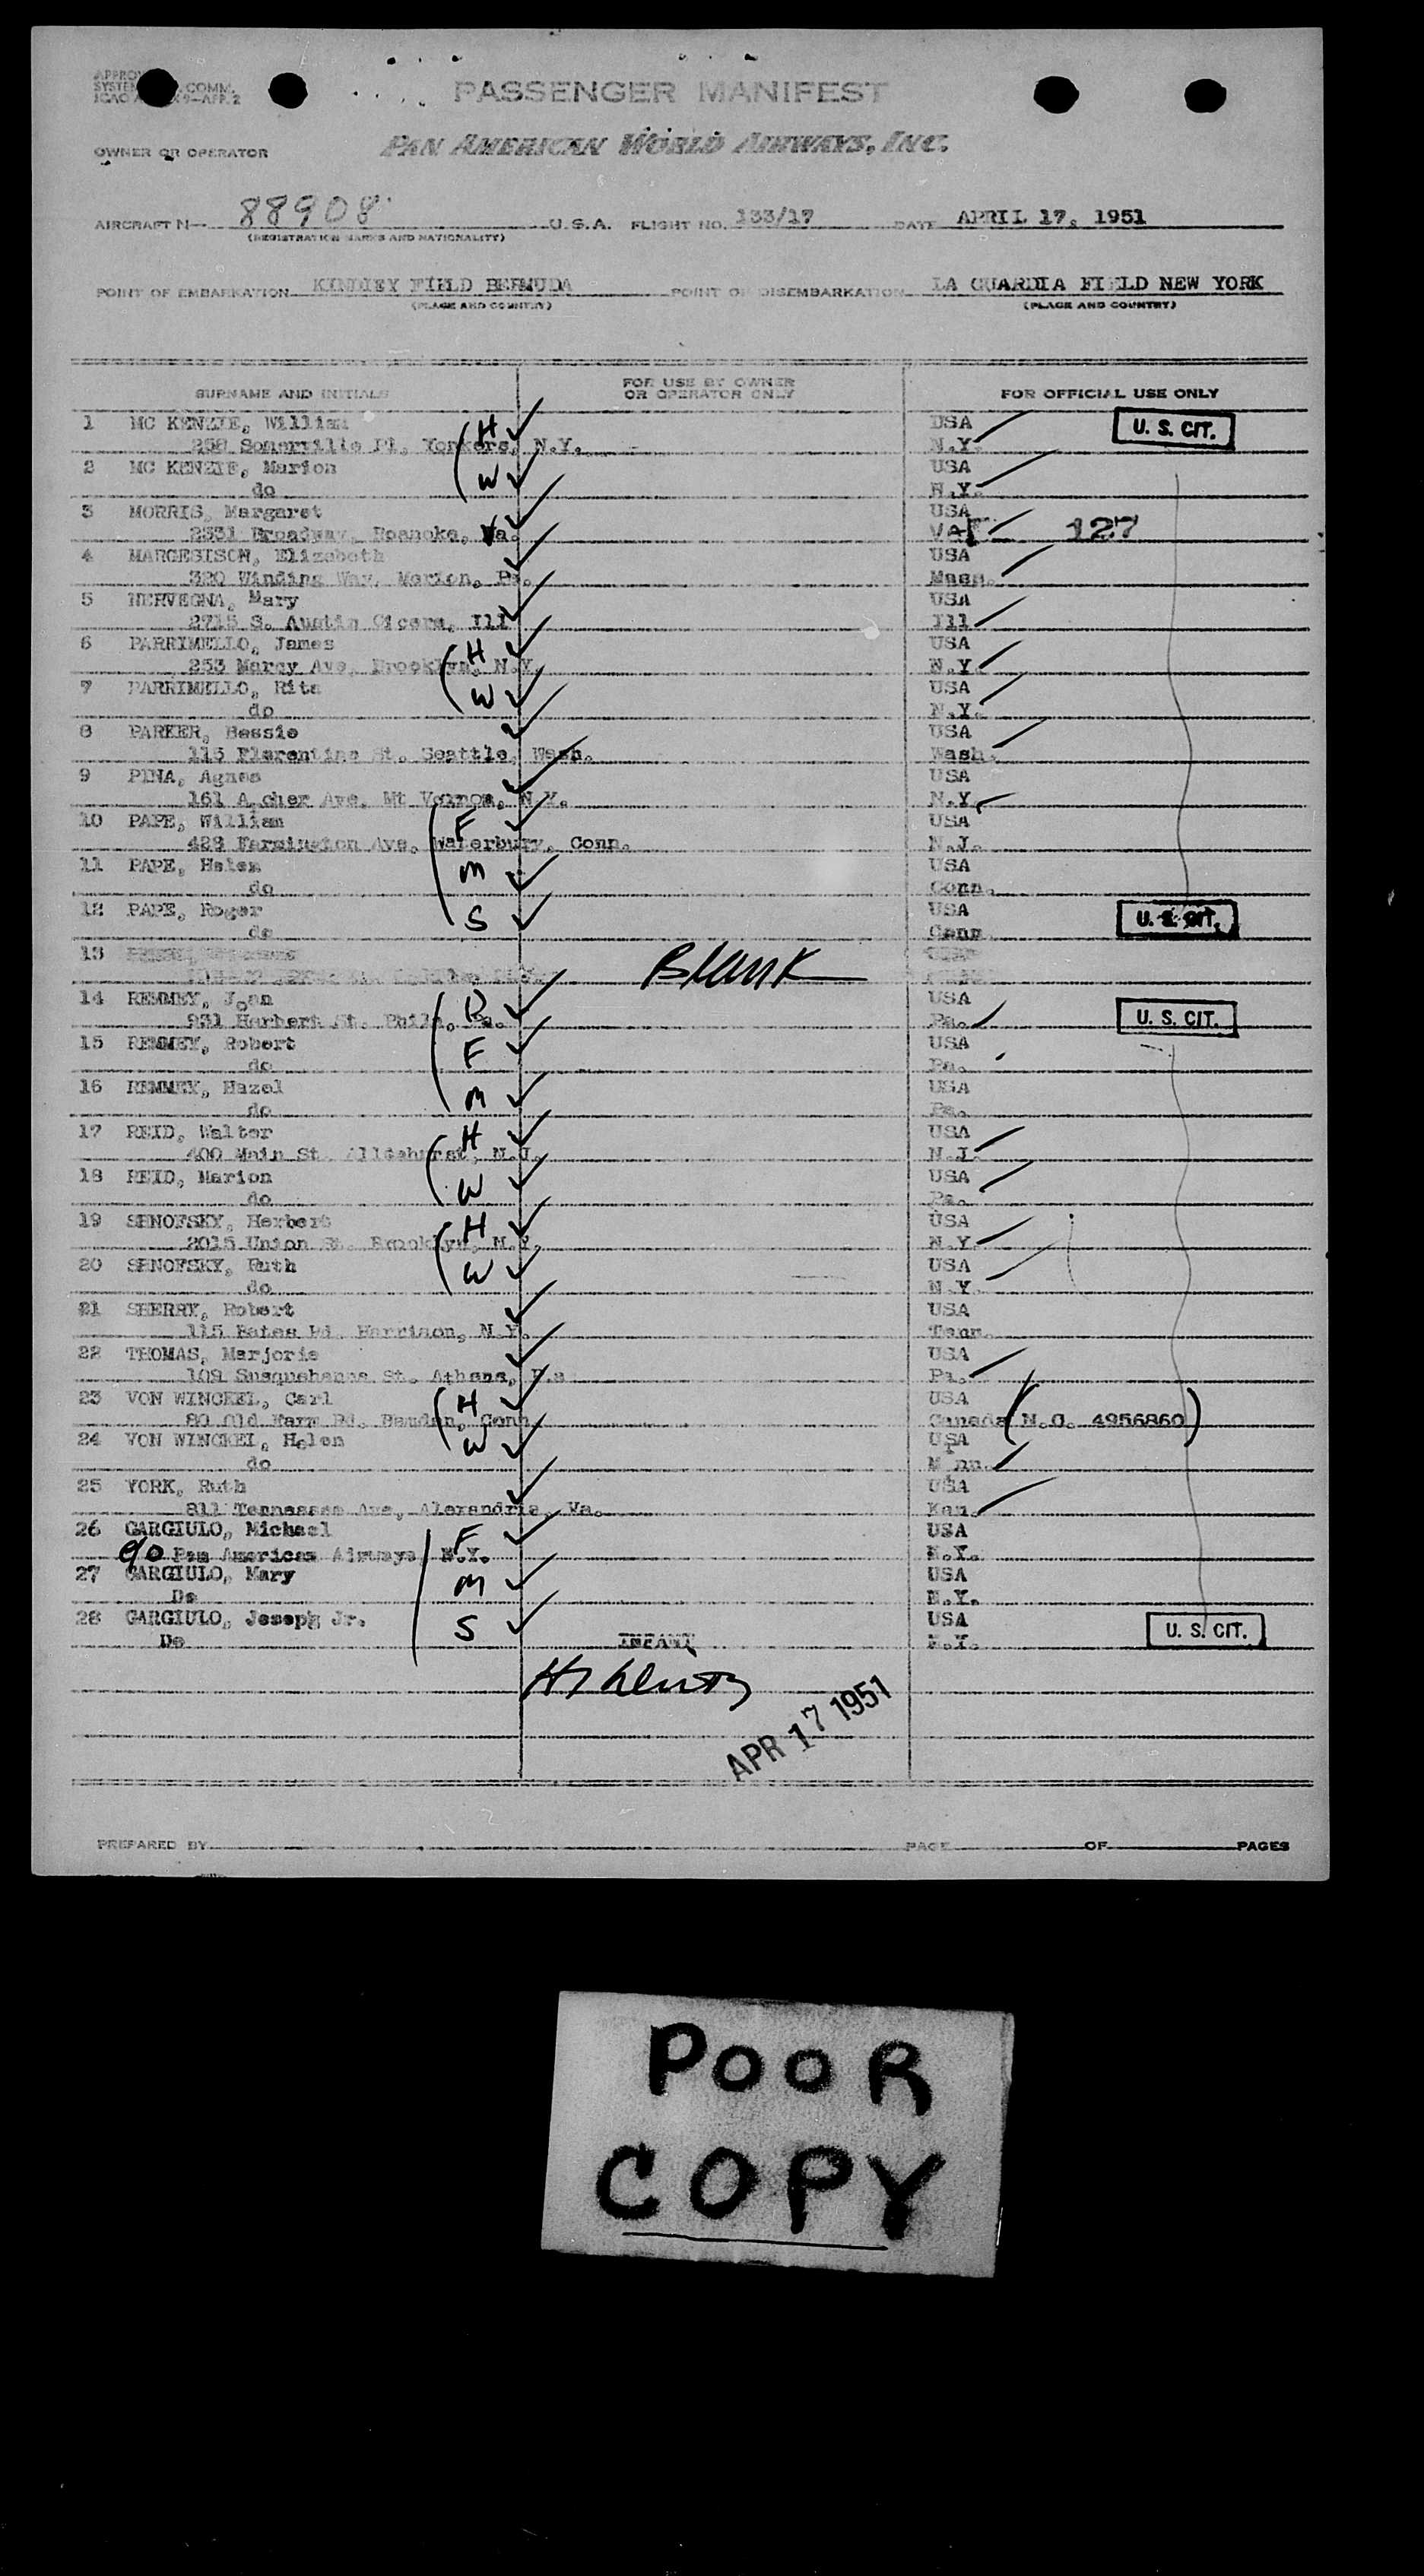 PASSENGER MANIFEST
OWNER OR OPERATOR PAN AMERICAN WORLD AIRWAYS, INC.
AIRCRAFT N— 88908 U.S.A. FLIGHT NO. 133/17 DATE APRIL 17, 1951
(REGISTRATION MARKS AND NATIONALITY)
POINT OF EMBARKATION KINDLEY FIELD BERMUDA POINT OF DISEMBARKATION LA GUARDIA FIELD NEW YORK
(PLACE AND COUNTRY) (PLACE AND COUNTRY)
SURNAME AND INITIALS FOR USE BY OWNER OR OPERATOR ONLY FOR OFFICIAL USE ONLY
1 MC KENZIE, William H USA U. S. CIT.
258 Somerville Pl, Yonkers, N.Y. N.Y.
2 MC KENZIE, Marion USA
do W N.Y.
3 MORRIS, Margaret USA
2331 Broadway, Roanoke, Va. VA 127
4 Elizabeth USA
320 Winding Way, Merion, Pa.
5 Mary USA
2715 S. Austin Cicero, Ill Ill
6 PARRIMELLO, James H USA
253 Marcy Ave, Brooklyn, N.Y. N.Y.
7 PARRIMELLO, Rita W USA
do N.Y.
8 PARKER, Bessie USA
115 Florentine St. Seattle, Wash. Wash.
9 PINA, Agnes USA
161 Archer Ave, Mt Vernon, N.Y. N.Y.
10 PAPE, William F USA
Farmington Ave, Waterbury, Conn. N.J.
11 PAPE, Helen M USA
do Conn.
12 PAPE, Roger S USA U. S. CIT.
do Conn
13 Blank
14 REMMEY, Joan D USA
931 Herbert St. Phila, Pa. Pa. U. S. CIT.
15 REMMEY, Robert F USA
do Pa.
16 REMMEY, Hazel USA
do M Pa.
17 REID, Walter H USA
400 Main St. N.J. N.J.
18 REID, Marion W USA
do Pa.
19 SENOFSKY, Herbert H USA
2015 Union St. Brooklyn, N.Y. N.Y.
20 SENOFSKY, Ruth W USA
do N.Y.
21 SHERRY, Robert USA
115 Bates Rd. Harrison, N.Y. Tenn.
22 THOMAS, Marjorie USA
109 Susquehanna St. Athens, Pa Pa.
23 VON WINCKEL, Carl H USA
80 Old Farm Rd. Conn Canada (N.C. 4956860)
24 VON WINCKEL, Helen W USA
do Minn.
25 YORK, Ruth USA
811 Tennessee Ave, Alexandria, Va. Kan.
26 GARGIULO, Michael F USA
c/o Pan American Airways N.Y. N.Y.
27 GARGIULO, Mary M USA
Do N.Y.
28 GARGIULO, Joseph Jr. S USA U. S. CIT.
Do INFANT N.Y.
APR 17 1951
PREPARED BY PAGE OF PAGES
POOR
COPY